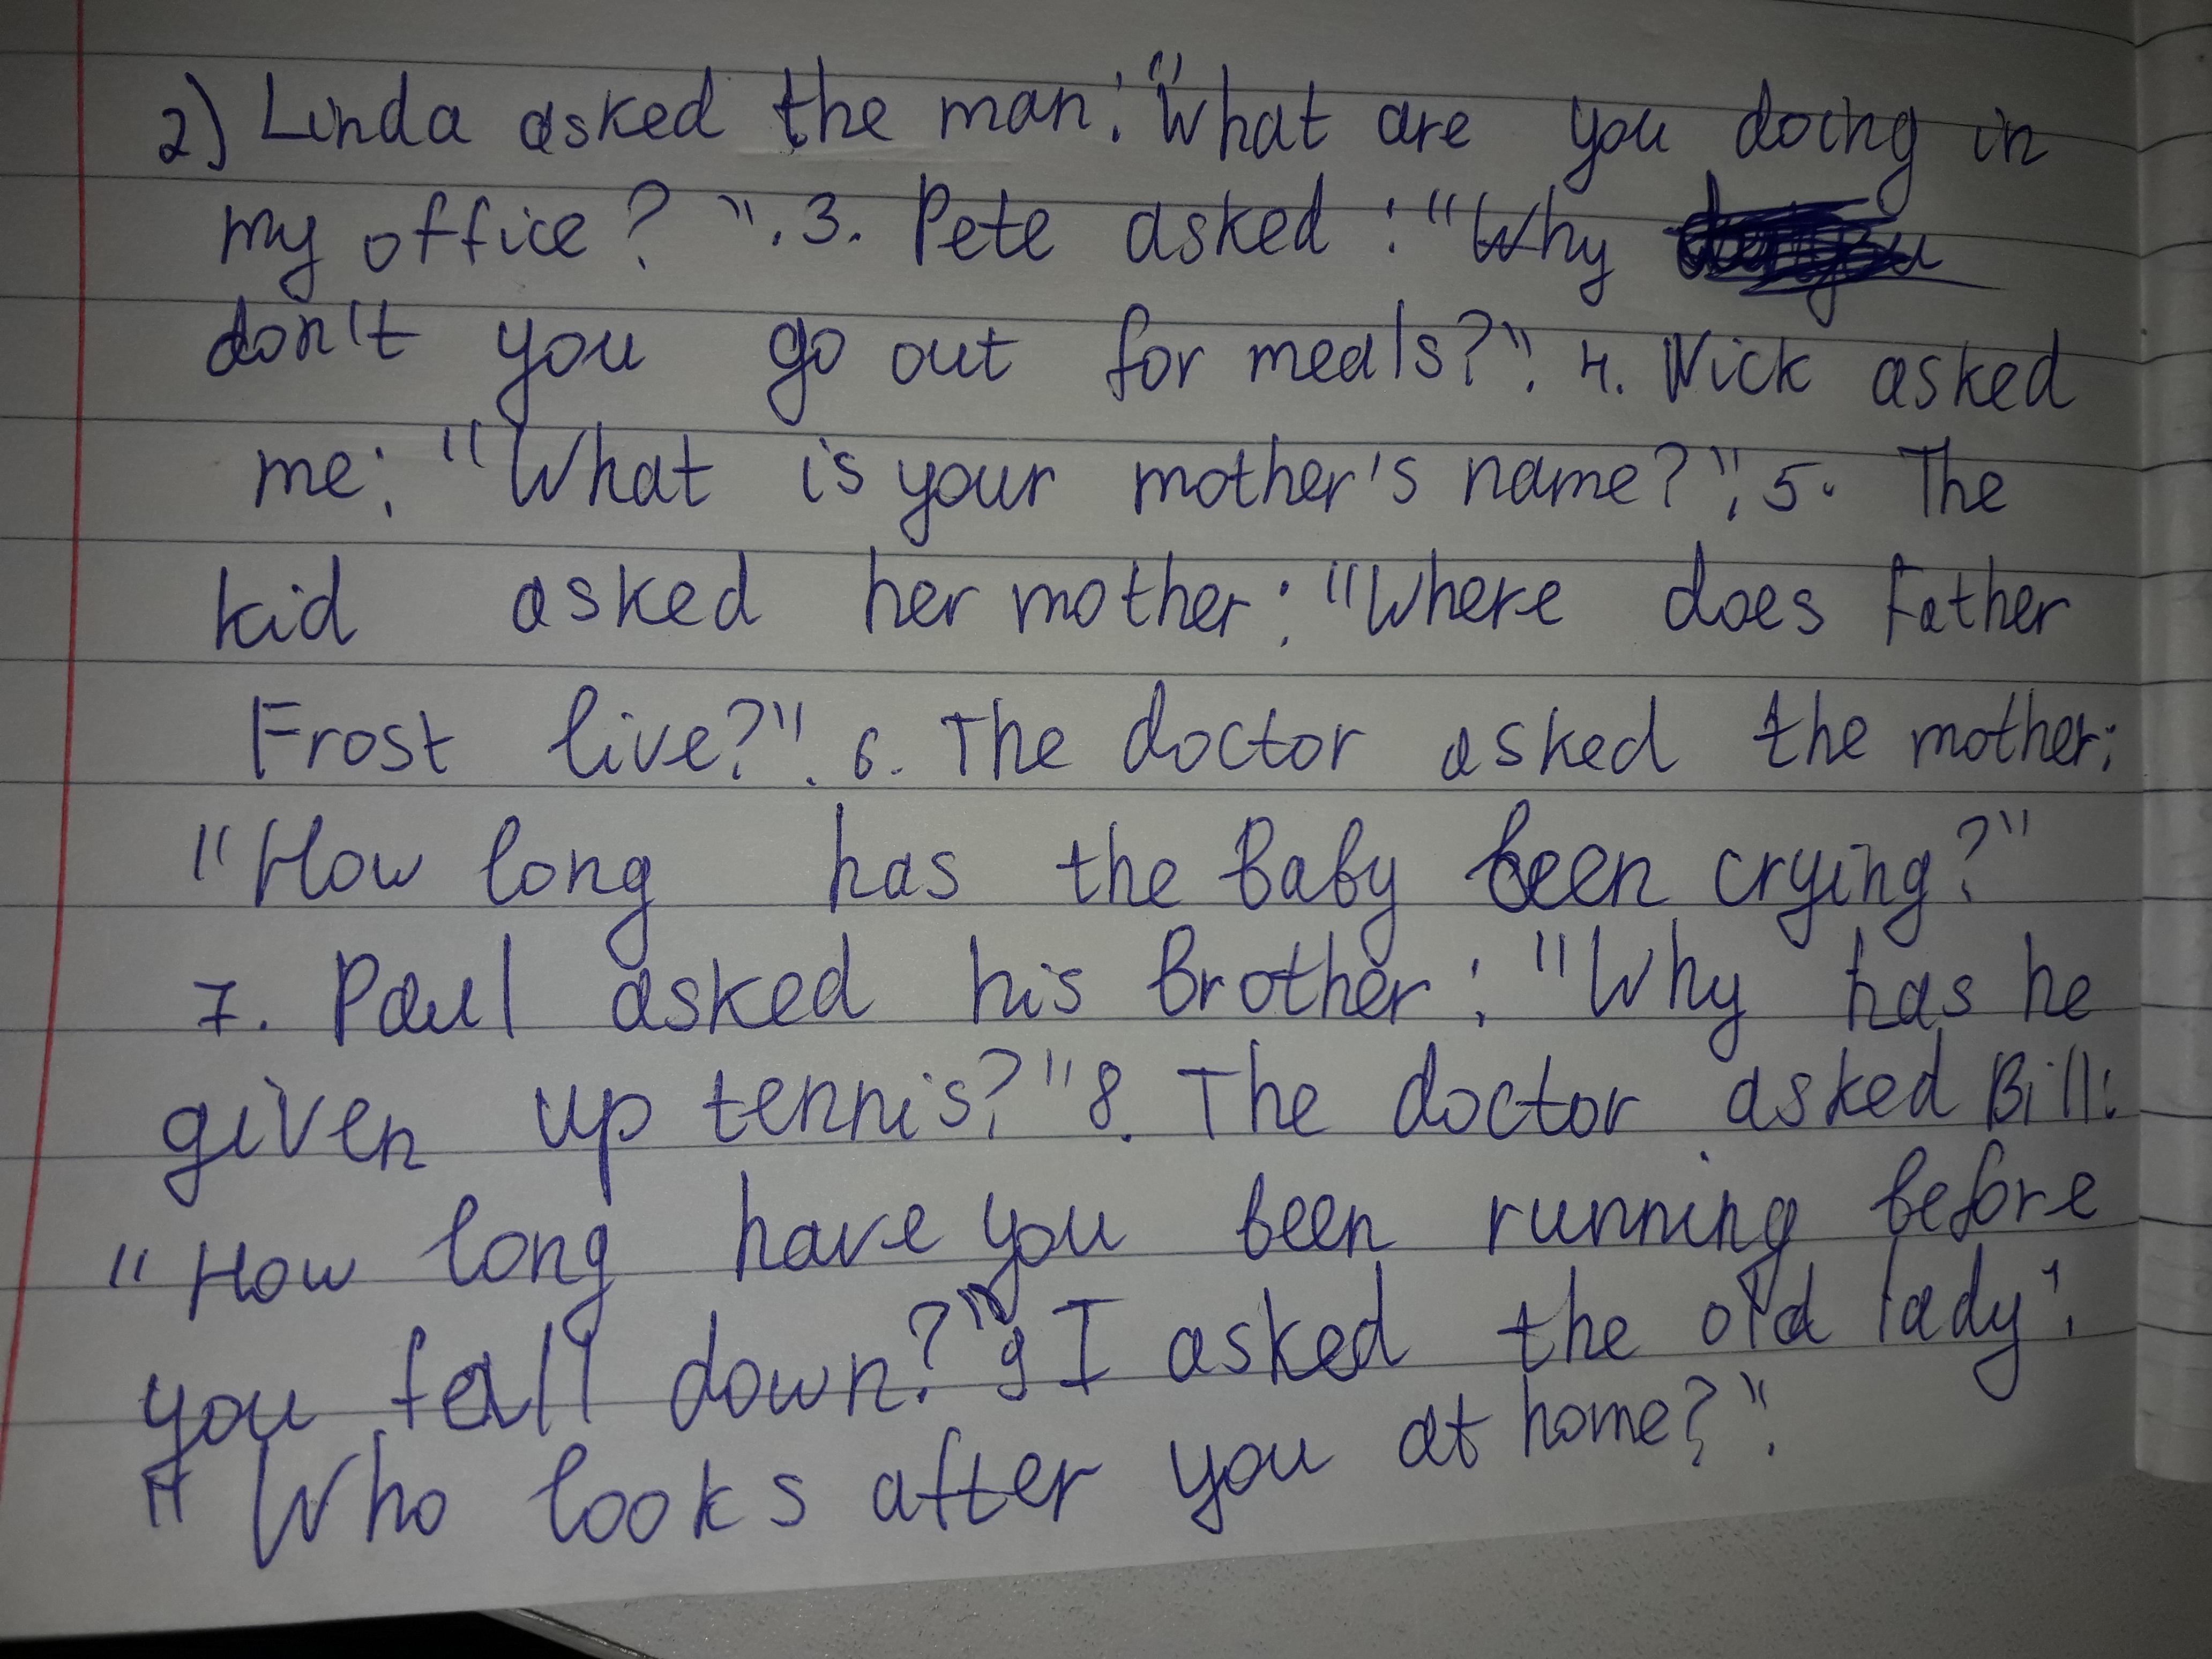 2) Linda asked the man: "What are you doing in
my office? ". 3. Pete asked : "Why
don't you go out for meals?". 4. Nick asked
me: "What is your mother's name?". 5. The
kid asked her mother: "Where does Father
Frost live?". 6. The doctor asked the mother:
"How long has the baby been crying?"
7. Paul asked his brother: "Why has he
given up tennis?" 8. The doctor asked Bill:
"How long have you been running before
you fall down?" 9 I asked the old lady:
"Who looks after you at home?".